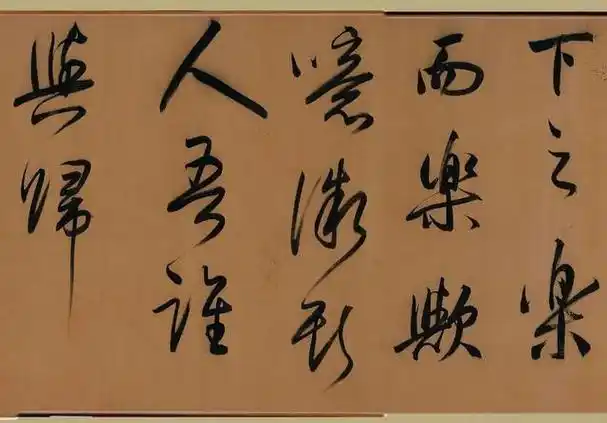 下之樂
而樂歟
噫微斯
人吾誰
與歸